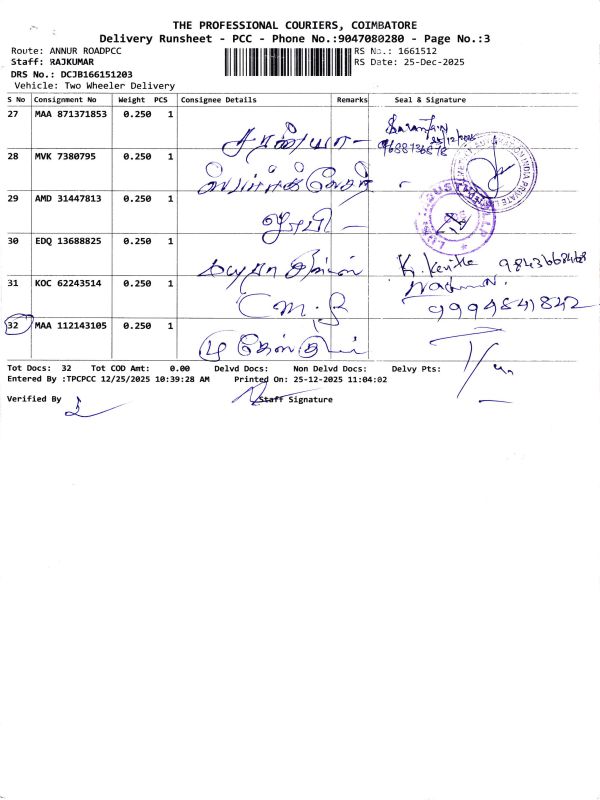 THE PROFESSIONAL COURIERS, COIMBATORE
Delivery Runsheet - PCC - Phone No.:9047080280 - Page No.:3
Route: ANNUR ROADPCC
RS No.: 1661512
Staff: RAJKUMAR
RS Date: 25-Dec-2025
DRS No.: DCJB166151203
Vehicle: Two Wheeler Delivery
S No Consignment No Weight PCS Consignee Details Remarks Seal & Signature
27 MAA 871371853 0.250 1
சரண்யா -
28 MVK 7380795 0.250 1
29 AMD 31447813 0.250 1
30 EDQ 13688825 0.250 1
K. Kavitha 9843668468
31 KOC 62243514 0.250 1
9994841842
32 MAA 112143105 0.250 1
Tot Docs: 32 Tot COD Amt: 0.00 Delvd Docs: Non Delvd Docs: Delvy Pts:
Entered By :TPCPCC 12/25/2025 10:39:28 AM Printed On: 25-12-2025 11:04:02
Verified By
Staff Signature